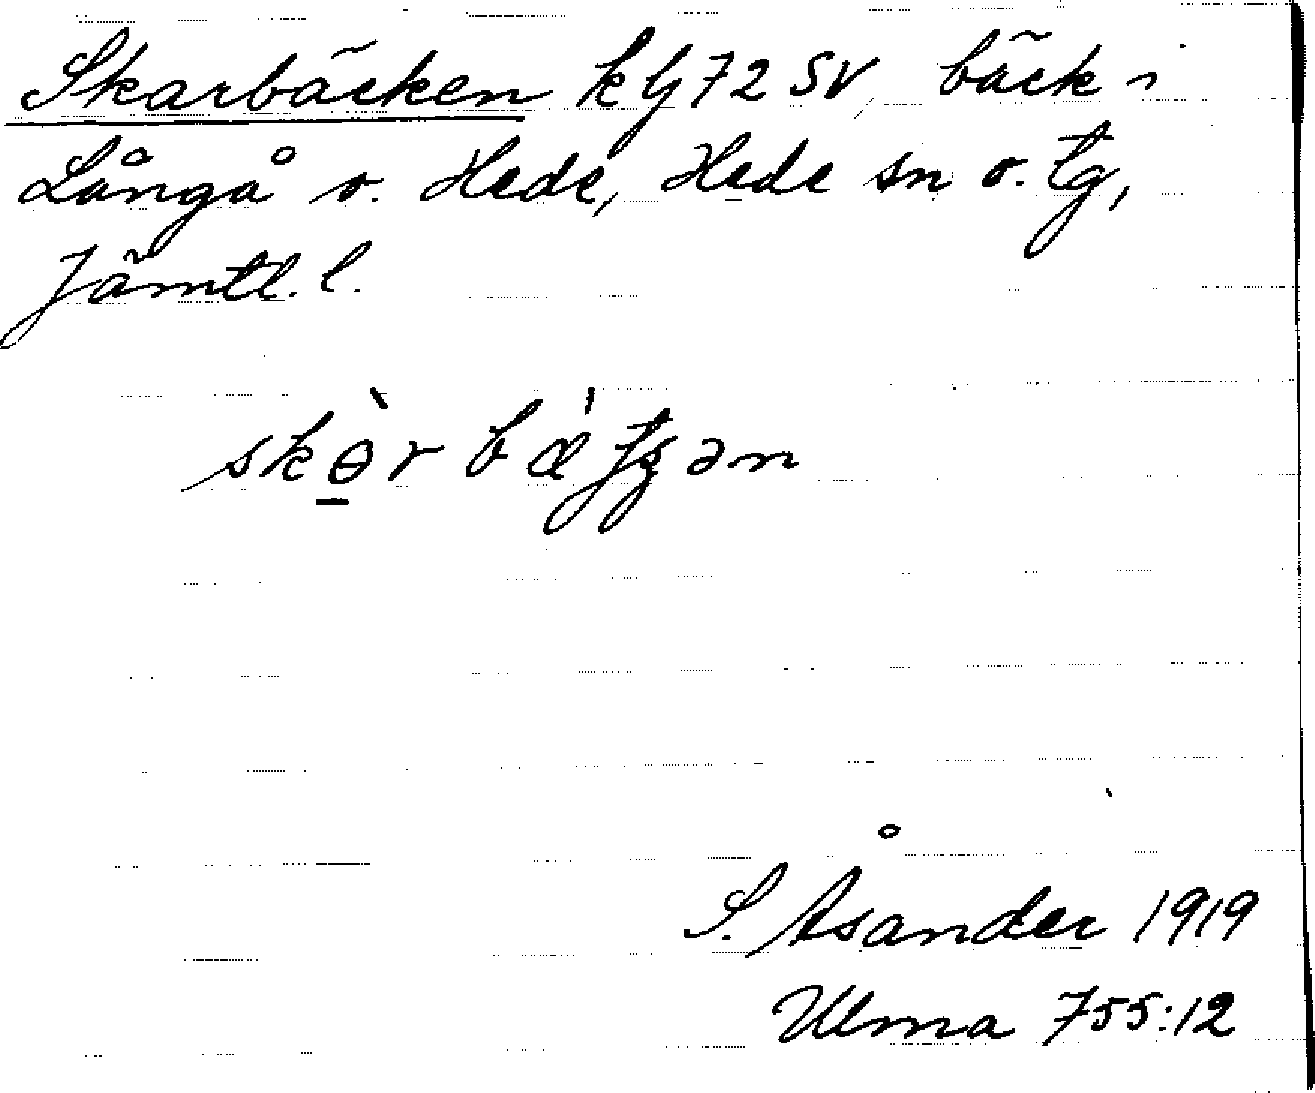 Skarbäcken k Lj 72 SV, bäck i
Långå o. Hede, Hede sn o. tg,
Jämtl. l.
S. Åsander 1919
Ulma 755:12